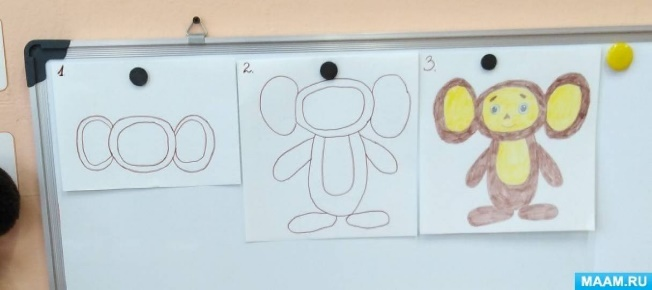 1
2.
3.
MAAM.RU